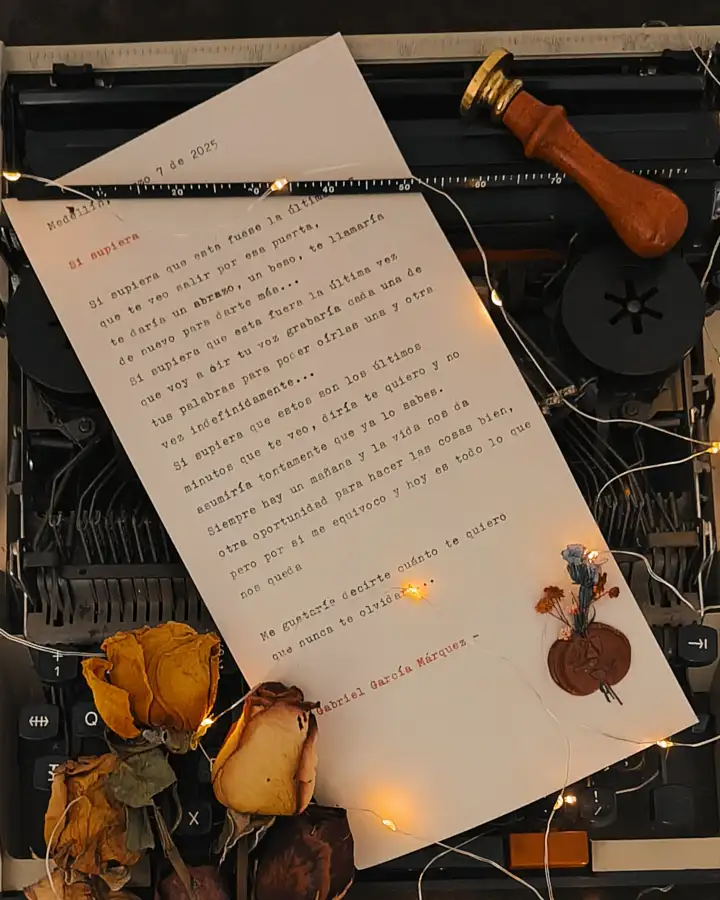 Medellín, zo 7 de 2025
Si supiera
Si supiera que esta fuese la última
que te veo salir por esa puerta,
te daría un abrazo, un beso, te llamaría
de nuevo para darte más...
Si supiera que esta fuera la última vez
que voy a oir tu voz grabaría cada una de
tus palabras para poder oírlas una y otra
vez indefinidamente...
Si supiera que estos son los últimos
minutos que te veo, diría te quiero y no
asumiría tontamente que ya lo sabes.
Siempre hay un mañana y la vida nos da
otra oportunidad para hacer las cosas bien,
pero por si me equivoco y hoy es todo lo que
nos queda
Me gustaría decirte cuánto te quiero
que nunca te olvidar...
Gabriel García Márquez -
20 40 50 60 70
1
Q
X